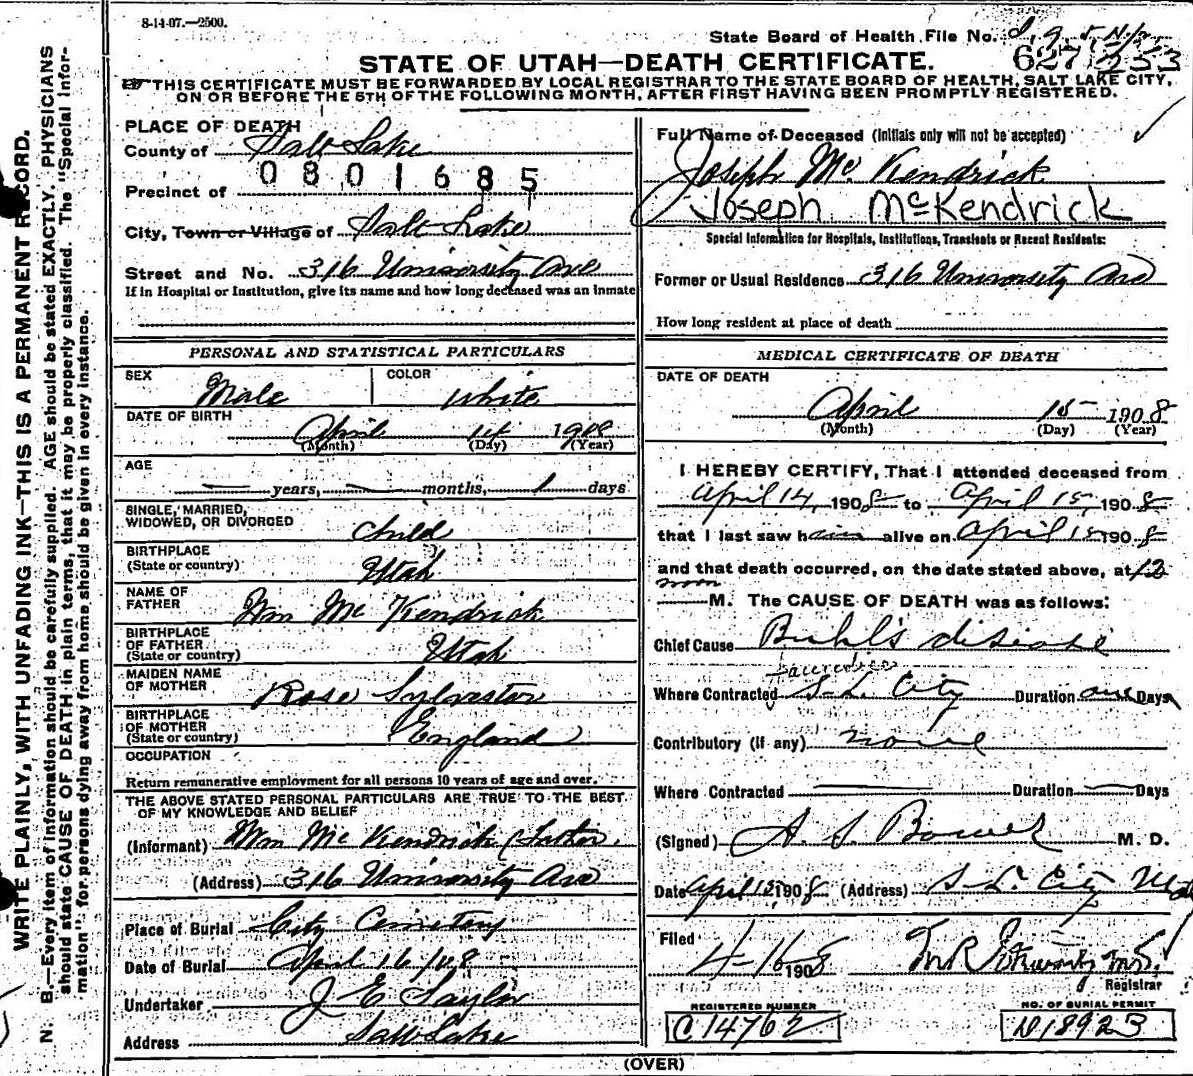 8-14-07.—2500.
State Board of Health File No.
627
STATE OF UTAH—DEATH CERTIFICATE.
THIS CERTIFICATE MUST BE FORWARDED BY LOCAL REGISTRAR TO THE STATE BOARD OF HEALTH, SALT LAKE CITY,
ON OR BEFORE THE 5TH OF THE FOLLOWING MONTH, AFTER FIRST HAVING BEEN PROMPTLY REGISTERED.
WRITE PLAINLY, WITH UNFADING INK—THIS IS A PERMANENT RECORD.
N. B.—Every item of information should be carefully supplied. AGE should be stated EXACTLY. PHYSICIANS
should state CAUSE OF DEATH in plain terms, that it may be properly classified. The "Special Infor-
mation" for persons dying away from home should be given in every instance.
PLACE OF DEATH
County of Salt Lake
0801685
Precinct of
City, Town or Village of Salt Lake
Street and No. 316 University Ave
If in Hospital or Institution, give its name and how long deceased was an inmate
Full Name of Deceased (Initials only will not be accepted)
Joseph Mc Kendrick
Joseph McKendrick
Special Information for Hospitals, Institutions, Transients or Recent Residents:
Former or Usual Residence 316 University Ave
How long resident at place of death
PERSONAL AND STATISTICAL PARTICULARS
SEX Male COLOR White
DATE OF BIRTH
April 14 1908
(Month) (Day) (Year)
AGE
years, months, 1 days
SINGLE, MARRIED,
WIDOWED, OR DIVORCED Child
BIRTHPLACE
(State or country) Utah
NAME OF
FATHER Wm Mc Kendrick
BIRTHPLACE
OF FATHER
(State or country) Utah
MAIDEN NAME
OF MOTHER Rose Sylvester
BIRTHPLACE
OF MOTHER
(State or country) England
OCCUPATION
Return remunerative employment for all persons 10 years of age and over.
THE ABOVE STATED PERSONAL PARTICULARS ARE TRUE TO THE BEST
OF MY KNOWLEDGE AND BELIEF
(Informant) Wm Mc Kendrick (Father)
(Address) 316 University Ave
Place of Burial City Cemetery
Date of Burial April 16/08
Undertaker J E Taylor
Address Salt Lake
MEDICAL CERTIFICATE OF DEATH
DATE OF DEATH
April 15 1908
(Month) (Day) (Year)
I HEREBY CERTIFY, That I attended deceased from
April 14, 1908 to April 15, 1908
that I last saw him alive on April 15 1908
and that death occurred, on the date stated above, at 12
noon
M. The CAUSE OF DEATH was as follows:
Chief Cause Buhl's disease
Jaundice
Where Contracted S. L. City Duration one Days
Contributory (if any) none
Where Contracted Duration Days
(Signed) M. D.
Date April 1908 (Address) S. L. City Utah
Filed
4-16 1908
Registrar
REGISTERED NUMBER
C 14762
NO. OF BURIAL PERMIT
18923
(OVER)